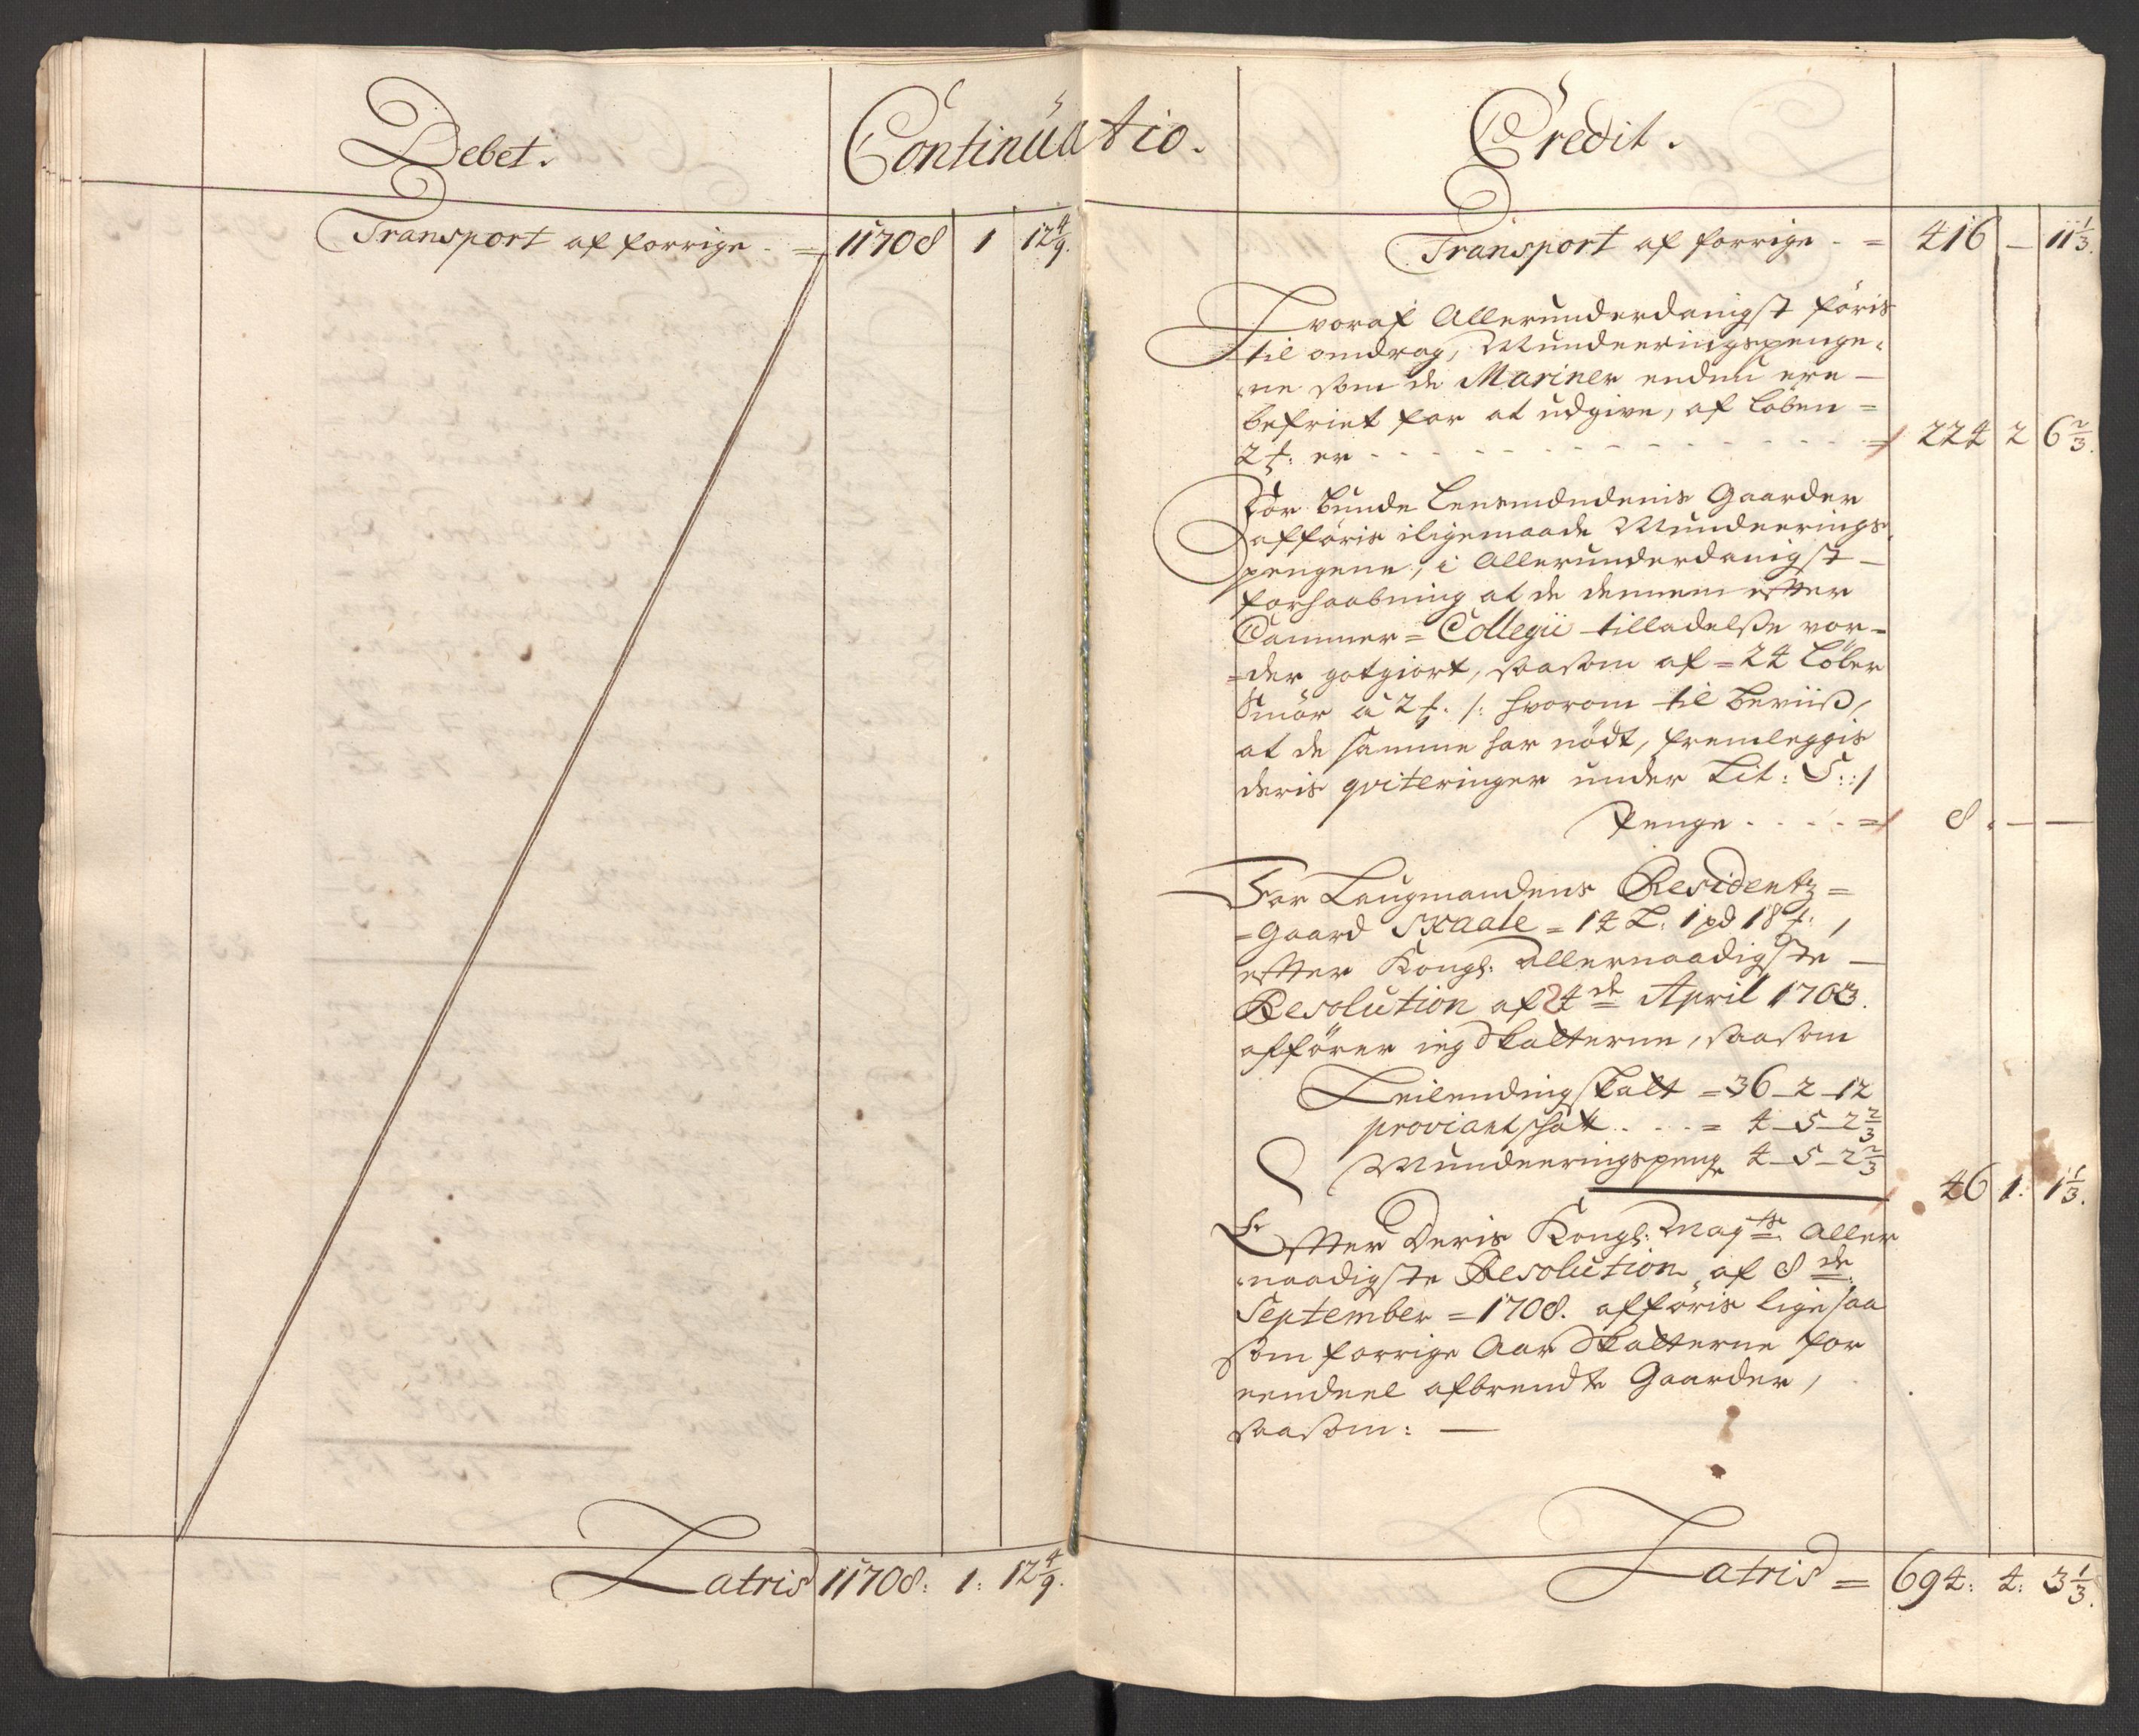 Debet.
Continuatio.
Transport af forrige - = 11708 1 12 4/9.
Latris 11708: 1: 12 4/9.
Credit.
Transport af forrige - = 416 — 11 1/3.
Hvoraf Allerunderdanigst föris
til omdrag, Munderingspenge-
ne som de Mariner endnu ere —
befriet for at udgive, af Löben =
2 ß: er - - - = 224 2 6 2/3.
For bunde Lensmændenis Gaarder
afföris iligemaade Munderings
pengene, i Allerunderdanigst —
forhaabning at de dennem efter
Cammer = Collegii tilladelße vor-
=der gotgiort, saasom af = 24 Löber
Smör à 2 ß. /: hvorom til beviiß,
at de samme har nödt, fremleggis
deris qviteringer under Lit: S: :/
Penge - - - - = 8. — —
For Laugmandens Residentz =
=Gaard Skaale = 14 L: 1 pd 18 ℔: /
efter Kongl: allernaadigste —
Resolution af 24de April 1703.
afförer ieg Skatterne, saasom
Leilendingskatt = 36 - 2 - 12
proviantskatt - - - = 4 - 5 - 2 2/3
Munderingspenge 4 - 5 - 2 2/3
46 1: 1 1/3.
Efter Deris Kongl: Mayts: Aller
naadigste Resolution af 8de
September = 1708. afföris ligesaa
som forrige Aar Skatterne for
eendeel afbrendte Gaarder,
saasom: —
Latris = 694: 4: 3 1/3.